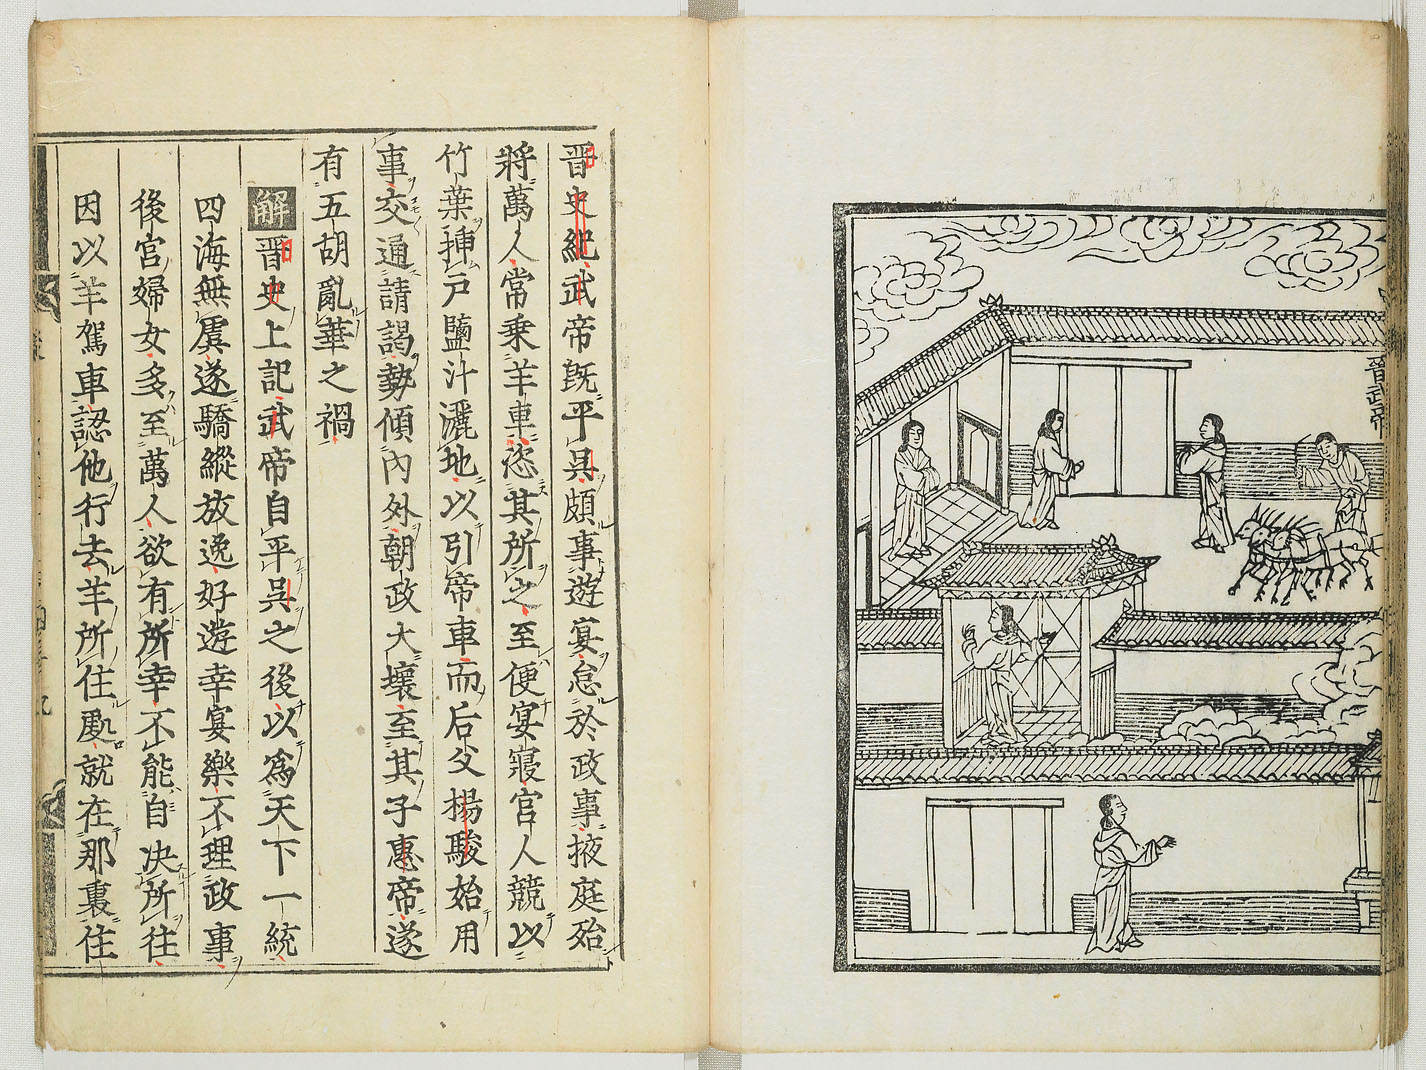 晋武帝
晋史紀武帝既平呉頗事遊宴怠於政事掖庭殆
將萬人常乗羊車恣其所之至便宴寢宮人競以
竹葉挿戸鹽汁灑地以引帝車而后父楊駿始用
事交通請謁勢傾内外朝政大壞至其子惠帝遂
有五胡亂華之禍
解晋史上記武帝自平呉之後以爲天下一統
四海無虞遂驕縱放逸好遊幸宴樂不理政事
後宮婦女多至萬人欲有所幸不能自决所往
因以羊駕車認他行去羊所住處就在那裏住